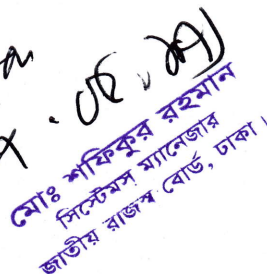 মোঃ শফিকুর রহমান
সিস্টেমস ম্যানেজার
জাতীয় রাজস্ব বোর্ড, ঢাকা।